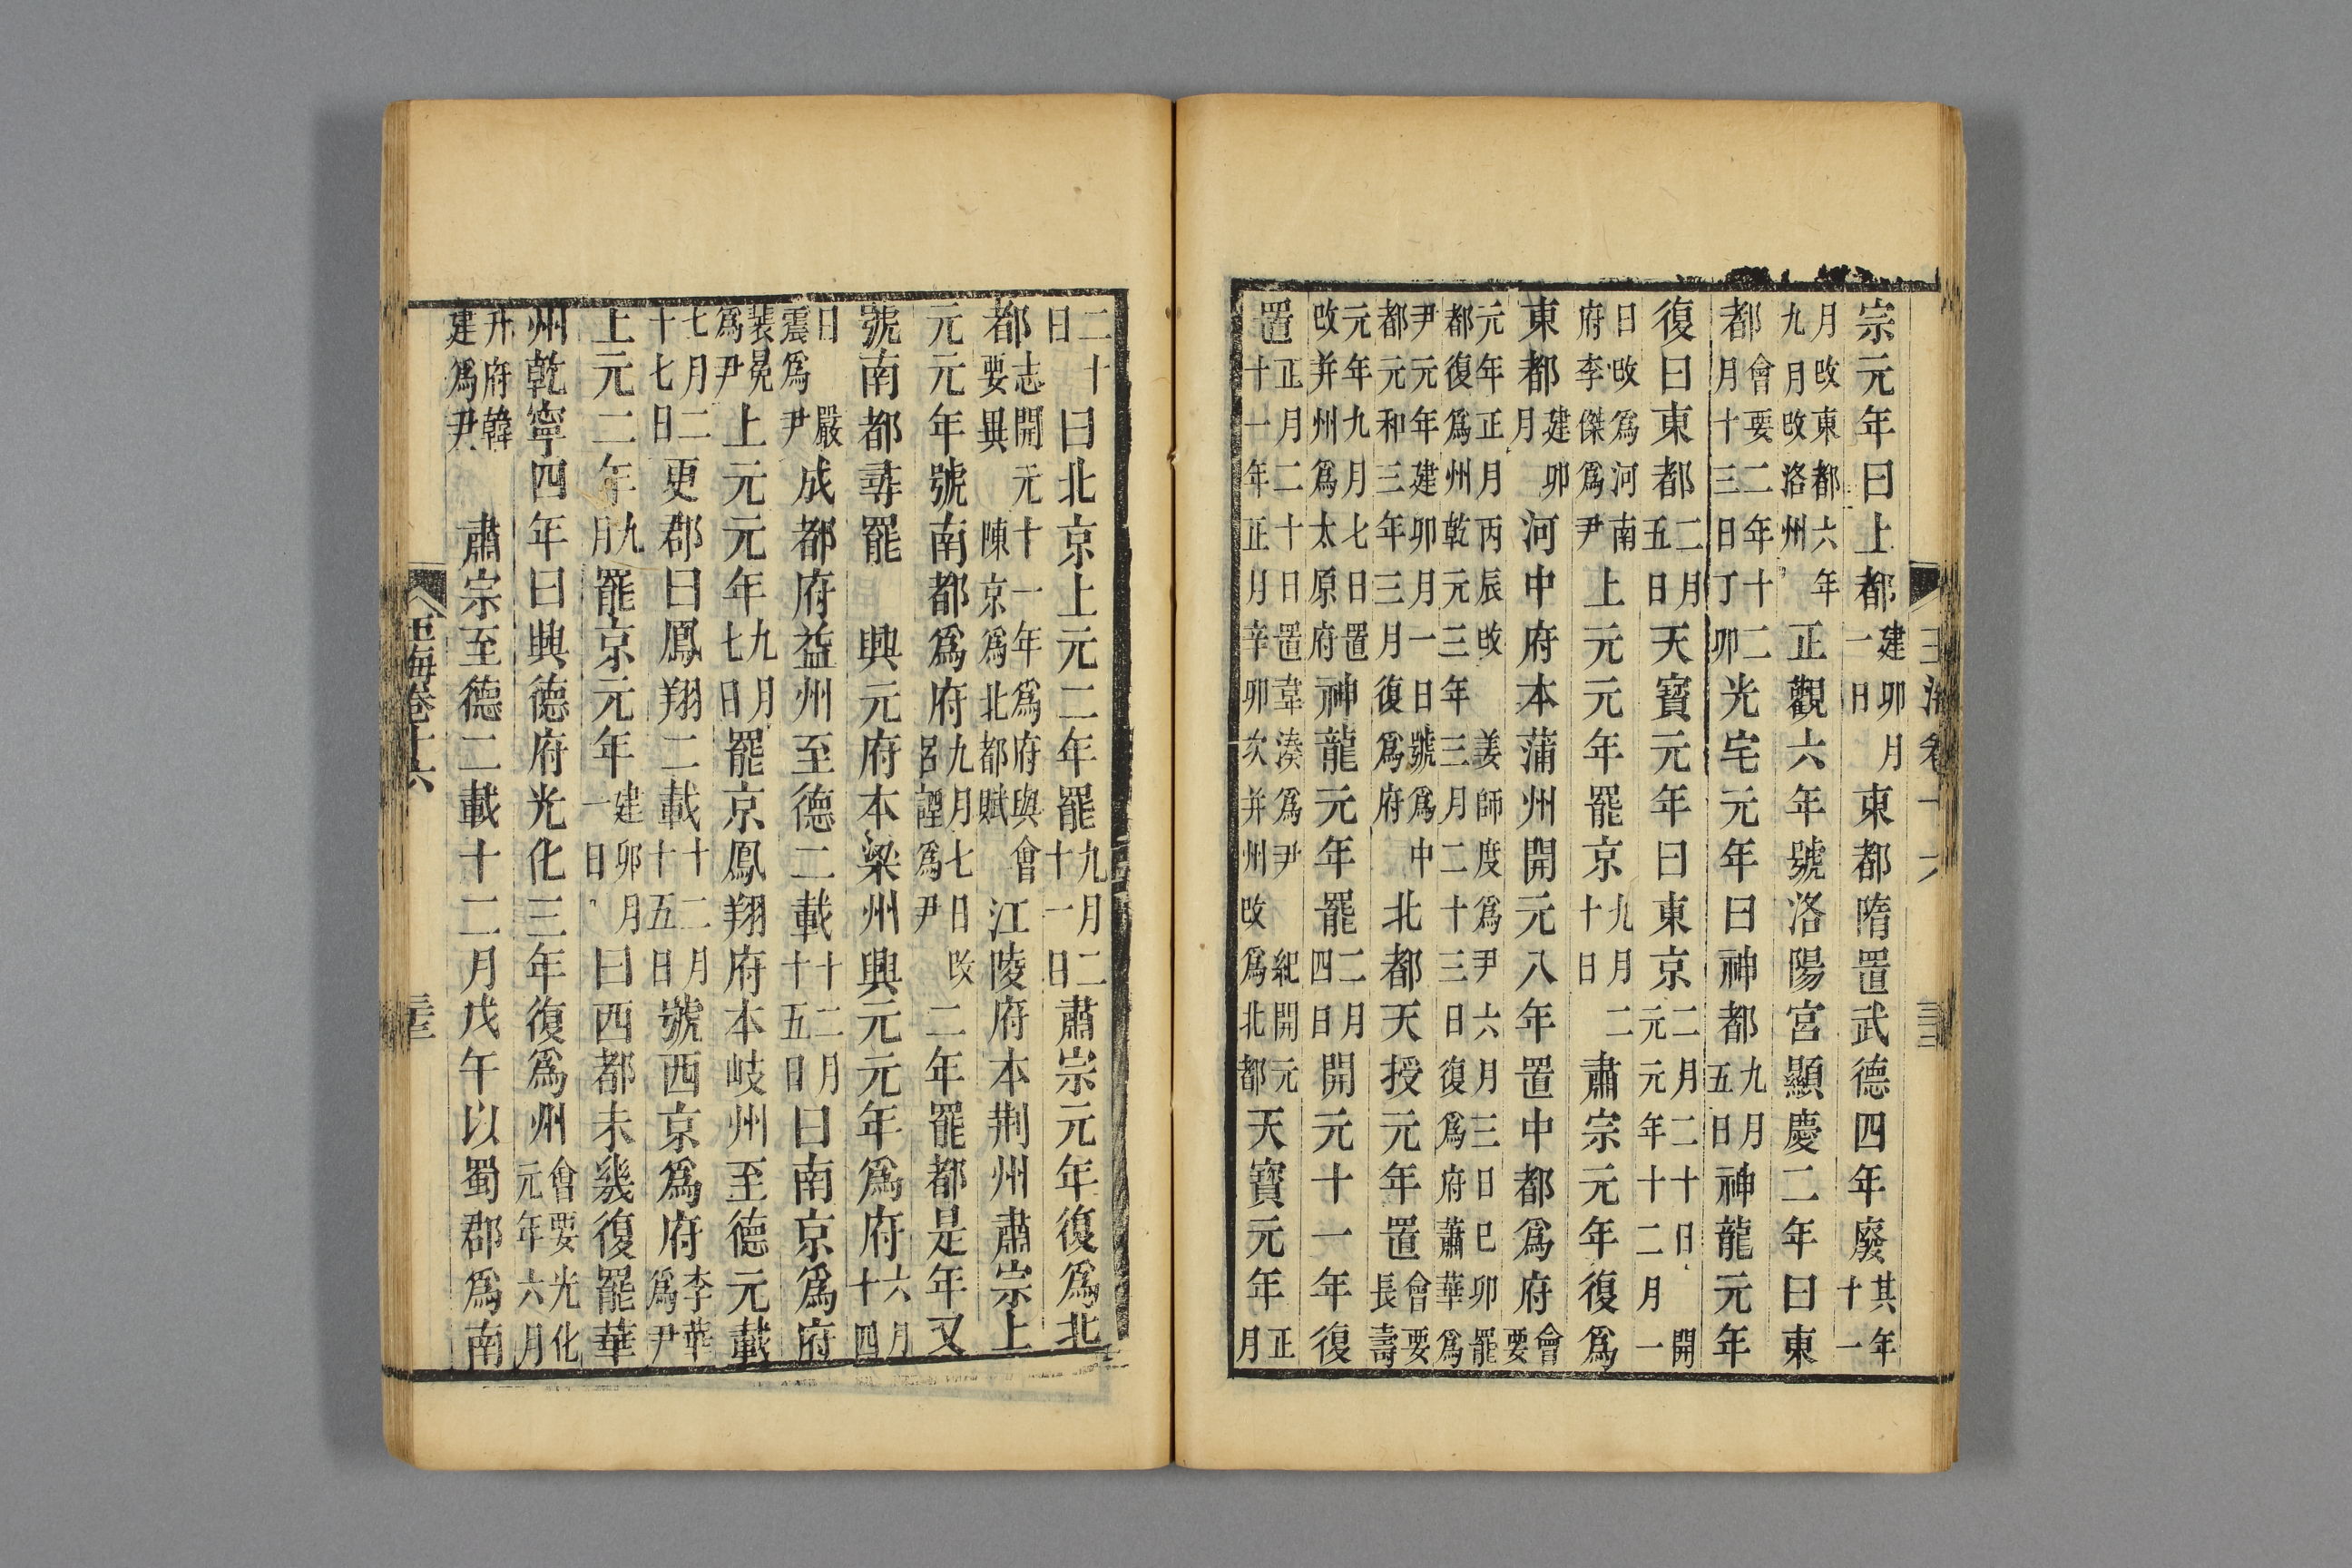 玉海卷十六
宗元年曰上都建卯月一日東都隋置武德四年廢其年十一
月改東都六年九月改洛州正觀六年號洛陽宮顯慶二年曰東
都會要二年十二月十三日丁卯光宅元年曰神都九月五日神龍元年
復曰東都二月五日天寶元年曰東京二月二十日開元元年十二月一
日改爲河南府李傑爲尹上元元年罷京九月二十日肅宗元年復爲
東都建卯月河中府本蒲州開元八年置中都爲府會要
元年正月丙辰改姜師度爲尹六月三日巳卯罷都復爲州乾元三年三月二十三日復爲府蕭華爲
尹元年建卯月一日號爲中都元和三年三月復爲府北都天授元年置會要長壽
元年九月七日置改并州爲太原府神龍元年罷二月四日開元十一年復
置正月二十日置韋湊爲尹紀開元十一年正月辛卯次并州改爲北都天寶元年正月
二十日曰北京上元二年罷九月二十一日肅宗元年復爲北
都志開元十一年爲府與會要異陳京爲北都賦江陵府本荆州肅宗上
元元年號南都爲府九月七日改呂諲爲尹二年罷都是年又
號南都尋罷興元府本梁州興元元年爲府六月十四
日嚴震爲尹成都府益州至德二載十二月十五日曰南京爲府
裴冕爲尹上元元年九月七日罷京鳳翔府本岐州至德元載
七月二十七日更郡曰鳳翔二載十二月十五日號西京爲府李華爲尹
上元二年九月罷京元年建卯月一日曰西都未幾復罷華
州乾寧四年曰興德府光化三年復爲州會要光化元年六月
升府韓建爲尹肅宗至德二載十二月戊午以蜀郡爲南
玉海卷十六